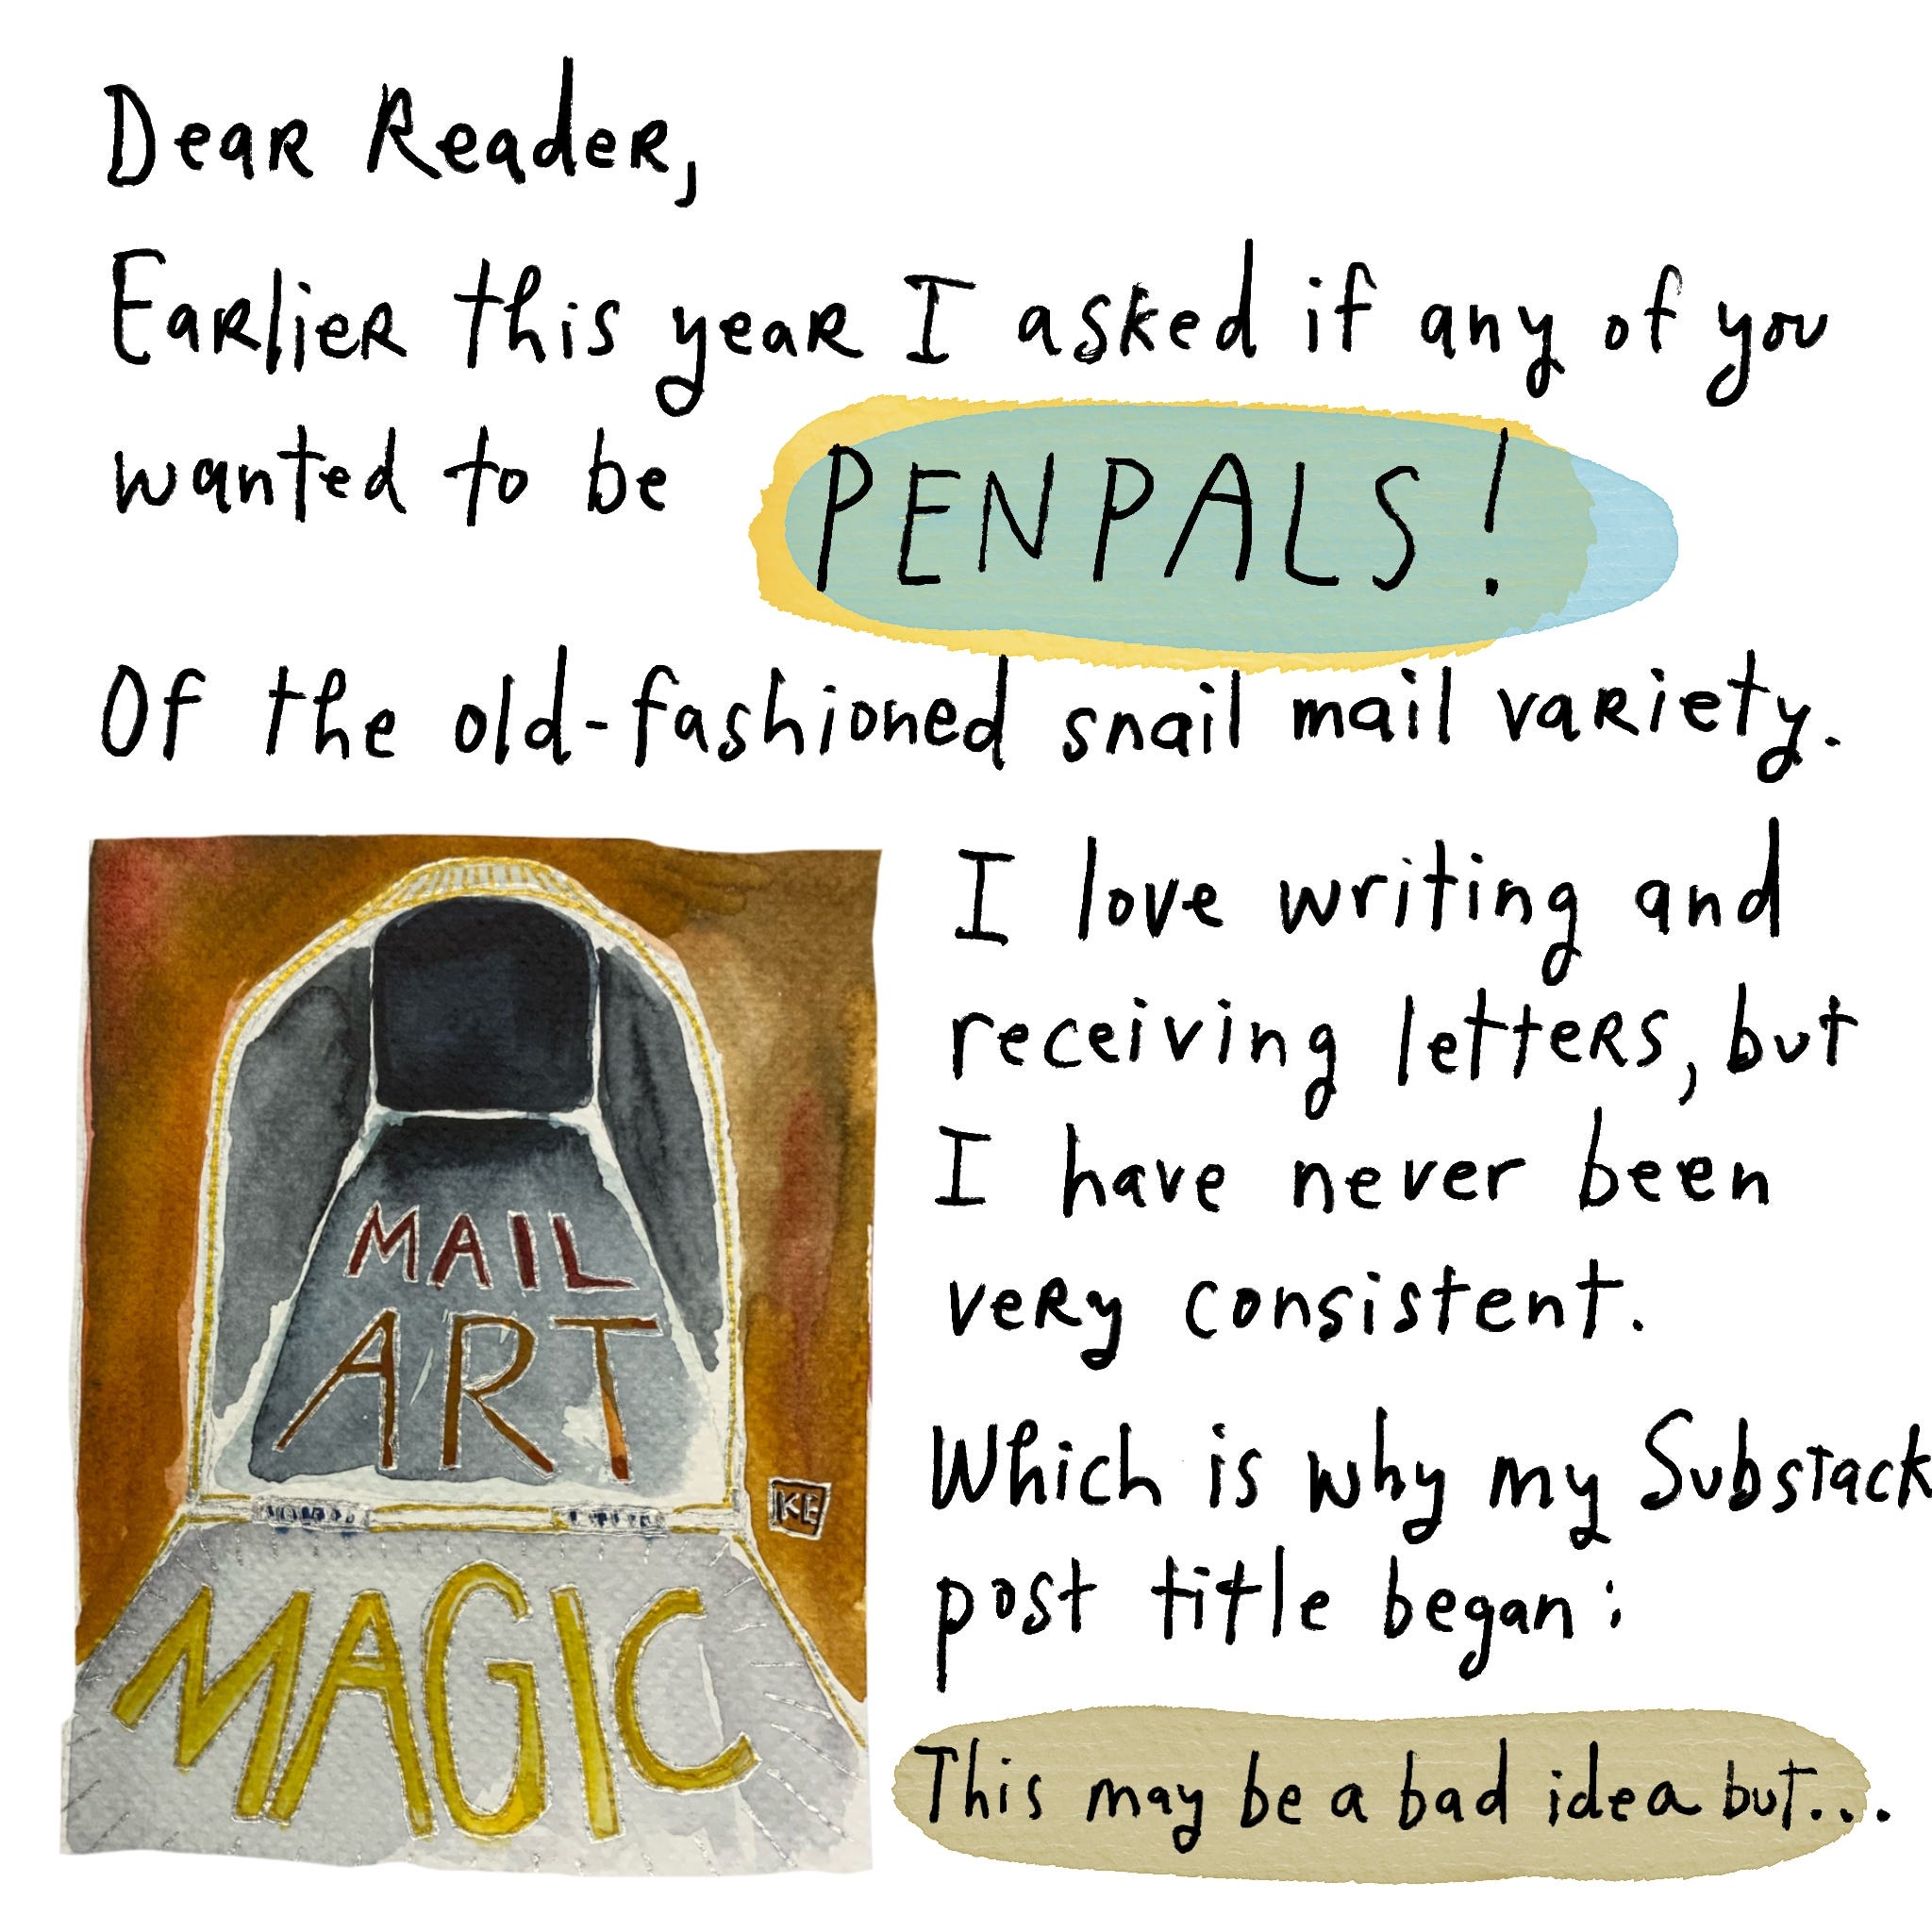 Dear Reader,
Earlier this year I asked if any of you
wanted to be PENPALS!
Of the old-fashioned snail mail variety.
I love writing and
receiving letters, but
I have never been
very consistent.
Which is why my Substack
post title began:
This may be a bad idea but...
MAIL
ART
KE
MAGIC